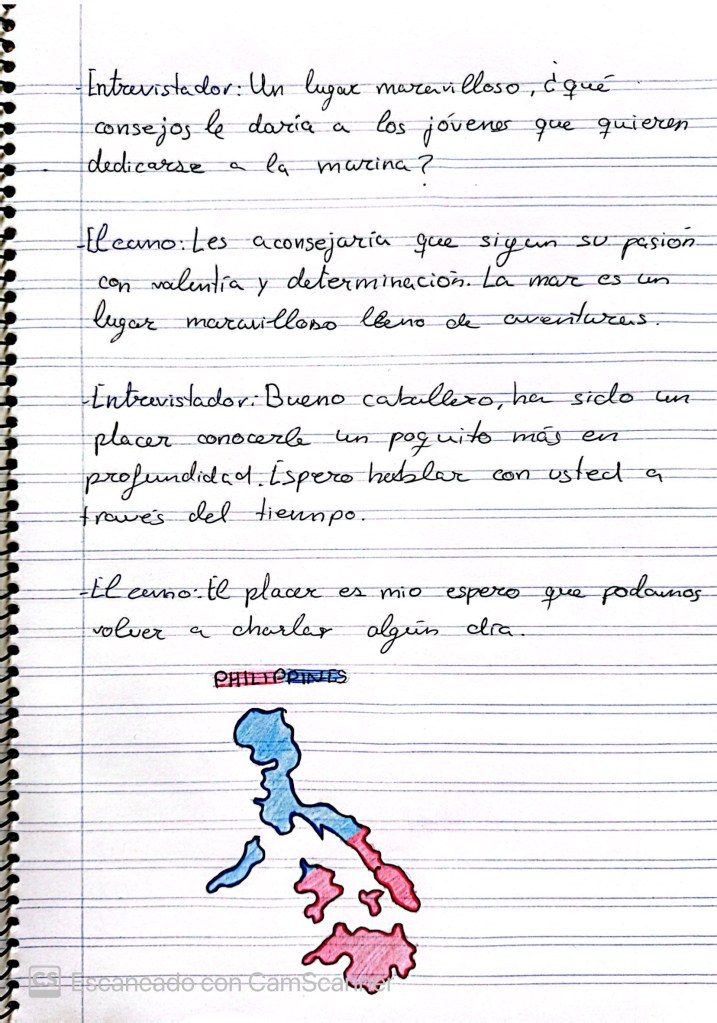 -Entrevistador: Un lugar maravilloso, ¿qué
consejos le daría a los jóvenes que quieren
dedicarse a la marina?
-Elcano: Les aconsejaría que sigan su pasión
con valentía y determinación. La mar es un
lugar maravilloso lleno de aventuras.
-Entrevistador: Bueno caballero, ha sido un
placer conocerle un poquito más en
profundidad. Espero hablar con usted a
través del tiempo.
-Elcano: El placer es mio espero que podamos
volver a charlar algún día.
PHILIPPINES
CS Escaneado con CamScanner